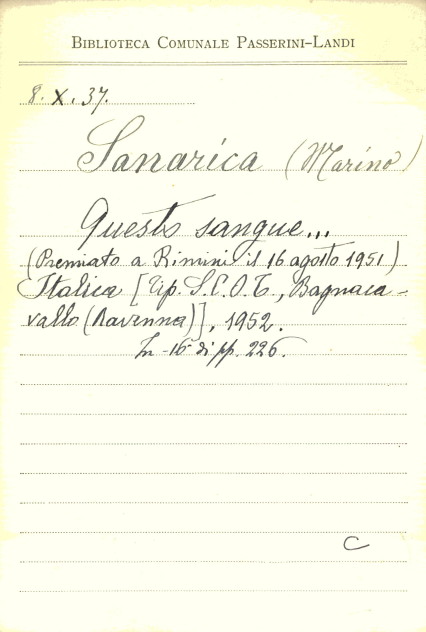 BIBLIOTECA COMUNALE PASSERINI-LANDI
8. X. 37.
Sanarica (Marino)
Questo sangue...
(Premiato a Rimini il 16 agosto 1951)
Italica [Tip. S.C.O.T., Bagnaca-
vallo (Ravenna)], 1952.
In-16° di pp. 226.
C